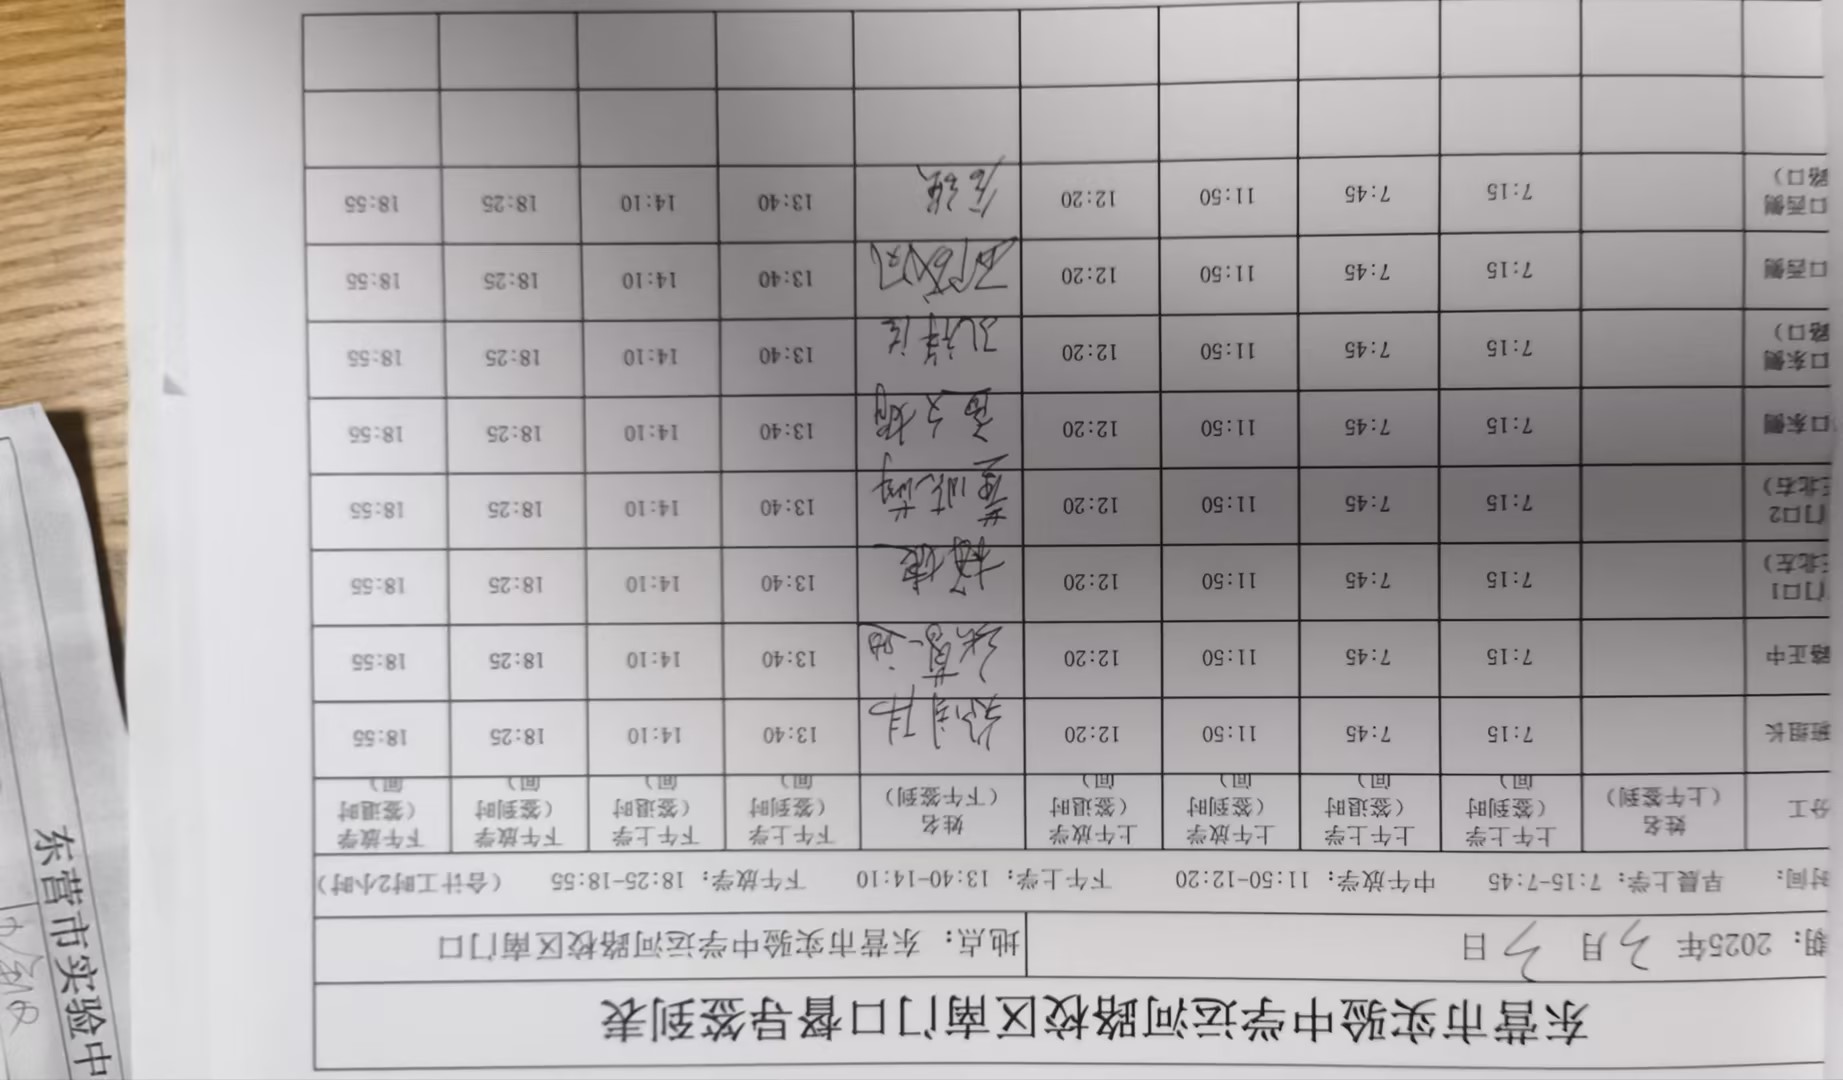 东营市实验中学运河路校区南门口督导签到表
期：2025年3月3日 地点：东营市实验中学运河路校区南门口
时间： 早晨上学：7:15-7:45 中午放学：11:50-12:20 下午上学：13:40-14:10 下午放学：18:25-18:55 （合计工时2小时）
分工 姓名（上午签到） 上午上学（签到时间） 上午上学（签退时间） 上午放学（签到时间） 上午放学（签退时间） 姓名（下午签到） 下午上学（签到时间） 下午上学（签退时间） 下午放学（签到时间） 下午放学（签退时间）
班组长 7:15 7:45 11:50 12:20 13:40 14:10 18:25 18:55
路正中 7:15 7:45 11:50 12:20 13:40 14:10 18:25 18:55
门口1 北左） 7:15 7:45 11:50 12:20 杨健 13:40 14:10 18:25 18:55
门口2 北右） 7:15 7:45 11:50 12:20 13:40 14:10 18:25 18:55
口东侧 7:15 7:45 11:50 12:20 13:40 14:10 18:25 18:55
口东侧 路口） 7:15 7:45 11:50 12:20 13:40 14:10 18:25 18:55
口西侧 7:15 7:45 11:50 12:20 13:40 14:10 18:25 18:55
口西侧 路口） 7:15 7:45 11:50 12:20 13:40 14:10 18:25 18:55
东营市实验中